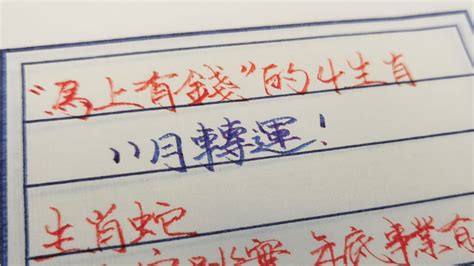 “馬上有錢”的4生肖
11月轉運！
生肖蛇
年底事業